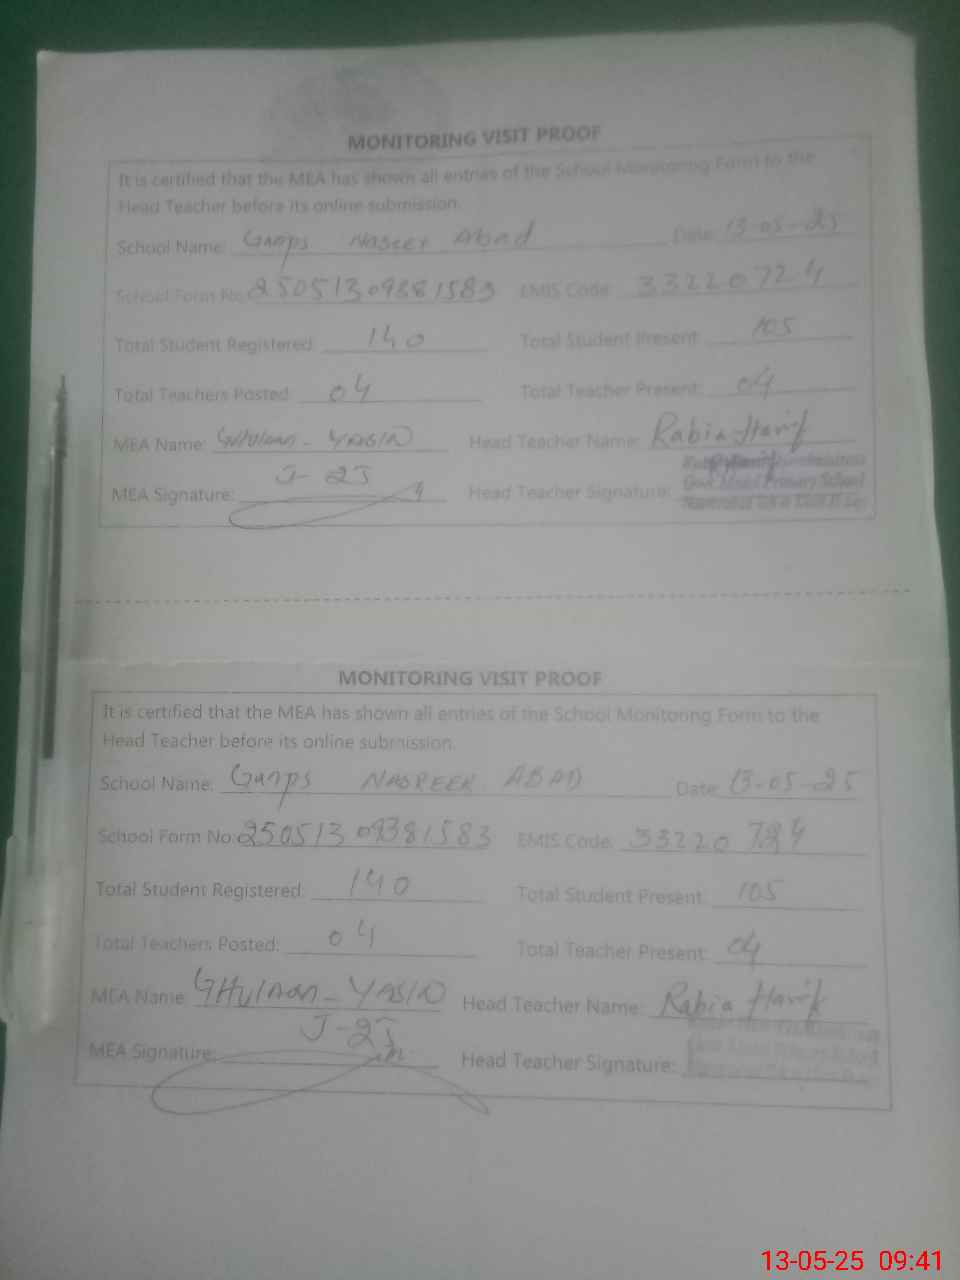 MONITORING VISIT PROOF
It is certified that the MEA has shown all entries of the School Monitoring Form to the
Head Teacher before its online submission.
School Name: Gmps Naseer Abad Date: 13-05-25
School Form No: 25051309381583 EMIS Code: 33220724
Total Student Registered: 140 Total Student Present: 105
Total Teachers Posted: 04 Total Teacher Present: 04
MEA Name: GHulaam - YASIN Head Teacher Name: Rabia Hanif
J-25
MEA Signature: Head Teacher Signature:
Govt. Model Primary School
MONITORING VISIT PROOF
It is certified that the MEA has shown all entries of the School Monitoring Form to the
Head Teacher before its online submission.
School Name: Gmps NASREER ABAD Date: 13-05-25
School Form No: 25051309381583 EMIS Code: 33220724
Total Student Registered: 140 Total Student Present: 105
Total Teachers Posted: 04 Total Teacher Present: 04
MEA Name: GHulaam - YASIN Head Teacher Name: Rabia Hanif
J-25
MEA Signature: Head Teacher Signature:
13-05-25 09:41